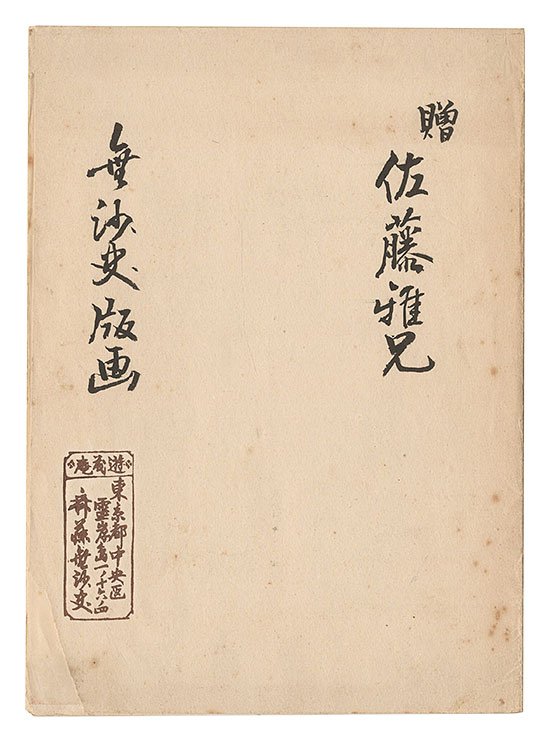 贈
佐藤雅兄
無沙史版画
遊蔵庵
東京都中央区
霊岸島一ノ十六ノ四
斎藤無沙史